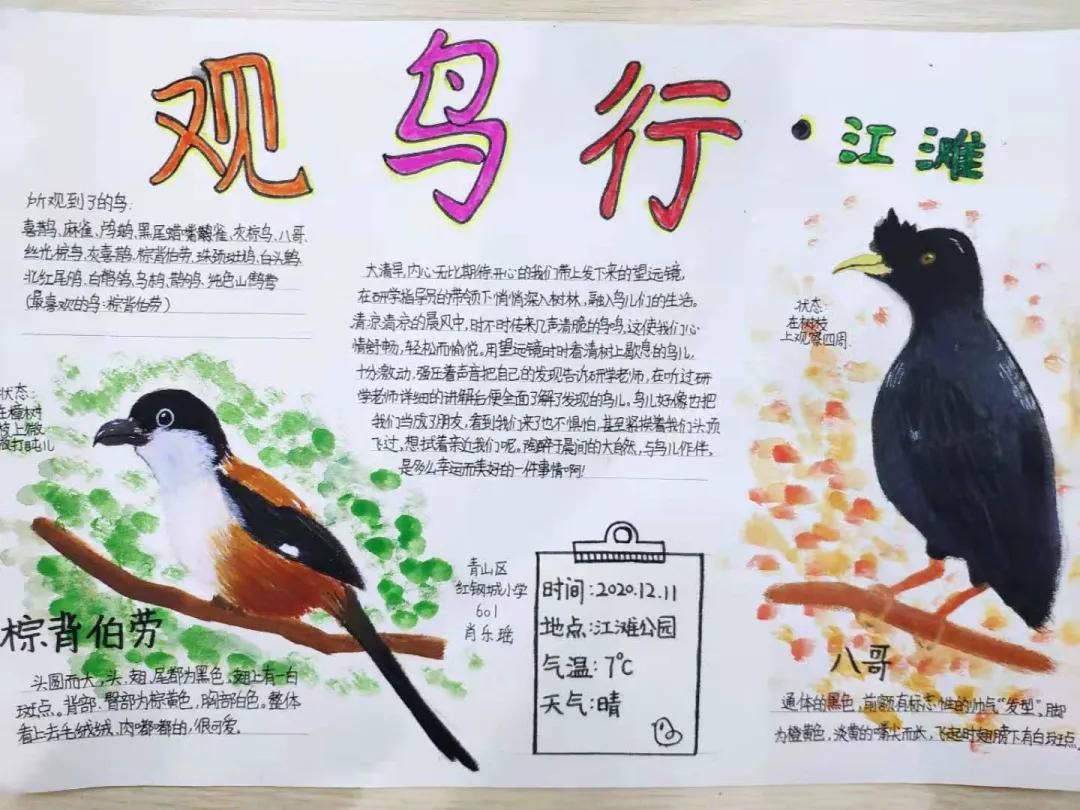 观鸟行·江滩
所观到了的鸟:
喜鹊、麻雀、鸬鹚、黑尾蜡嘴雀、灰椋鸟、八哥、
丝光椋鸟、灰喜鹊、棕背伯劳、珠颈斑鸠、白头鹎、
北红尾鸲、白鹡鸰、乌鸫、鹊鸲、纯色山鹪莺
(最喜欢的鸟:棕背伯劳)
大清早,内心无比期待开心的我们带上发下来的望远镜,
在研学指导员的带领下悄悄深入树林,融入鸟儿们的生活。
清凉清凉的晨风中,时不时传来几声清脆的鸟鸣,这使我们心
情舒畅,轻松而愉悦。用望远镜时时看清树上歇息的鸟儿,
十分激动,强压着声音把自己的发现告诉研学老师,在听过研
学老师详细的讲解后便全面了解了发现的鸟儿。鸟儿好像也把
我们当成了朋友,看到我们来了也不惧怕,甚至紧挨着我们头顶
飞过,想试着亲近我们呢,陶醉于晨间的大自然,与鸟儿作伴,
是多么幸运而美好的一件事情啊!
状态:
在树枝
上观察四周.
状态:
在樟树
枝上微
微打盹儿
棕背伯劳
头圆而大,头、翅、尾都为黑色,翅上有一白
斑点。背部、臀部为棕黄色,胸部白色。整体
看上去毛绒绒、肉嘟嘟的,很可爱。
青山区
红钢城小学
601
肖乐瑶
时间:2020.12.11
地点:江滩公园
气温:7℃
天气:晴
八哥
通体的黑色,前额有标志性的帅气“发型”,脚
为橙黄色,淡黄的嘴尖而大,飞起时翅膀下有白斑点